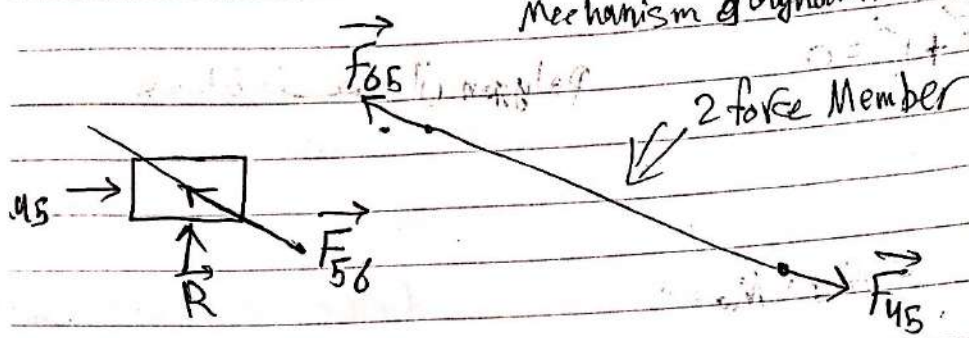 Mechanism
F65
2 force Member
45
F56
R
F45